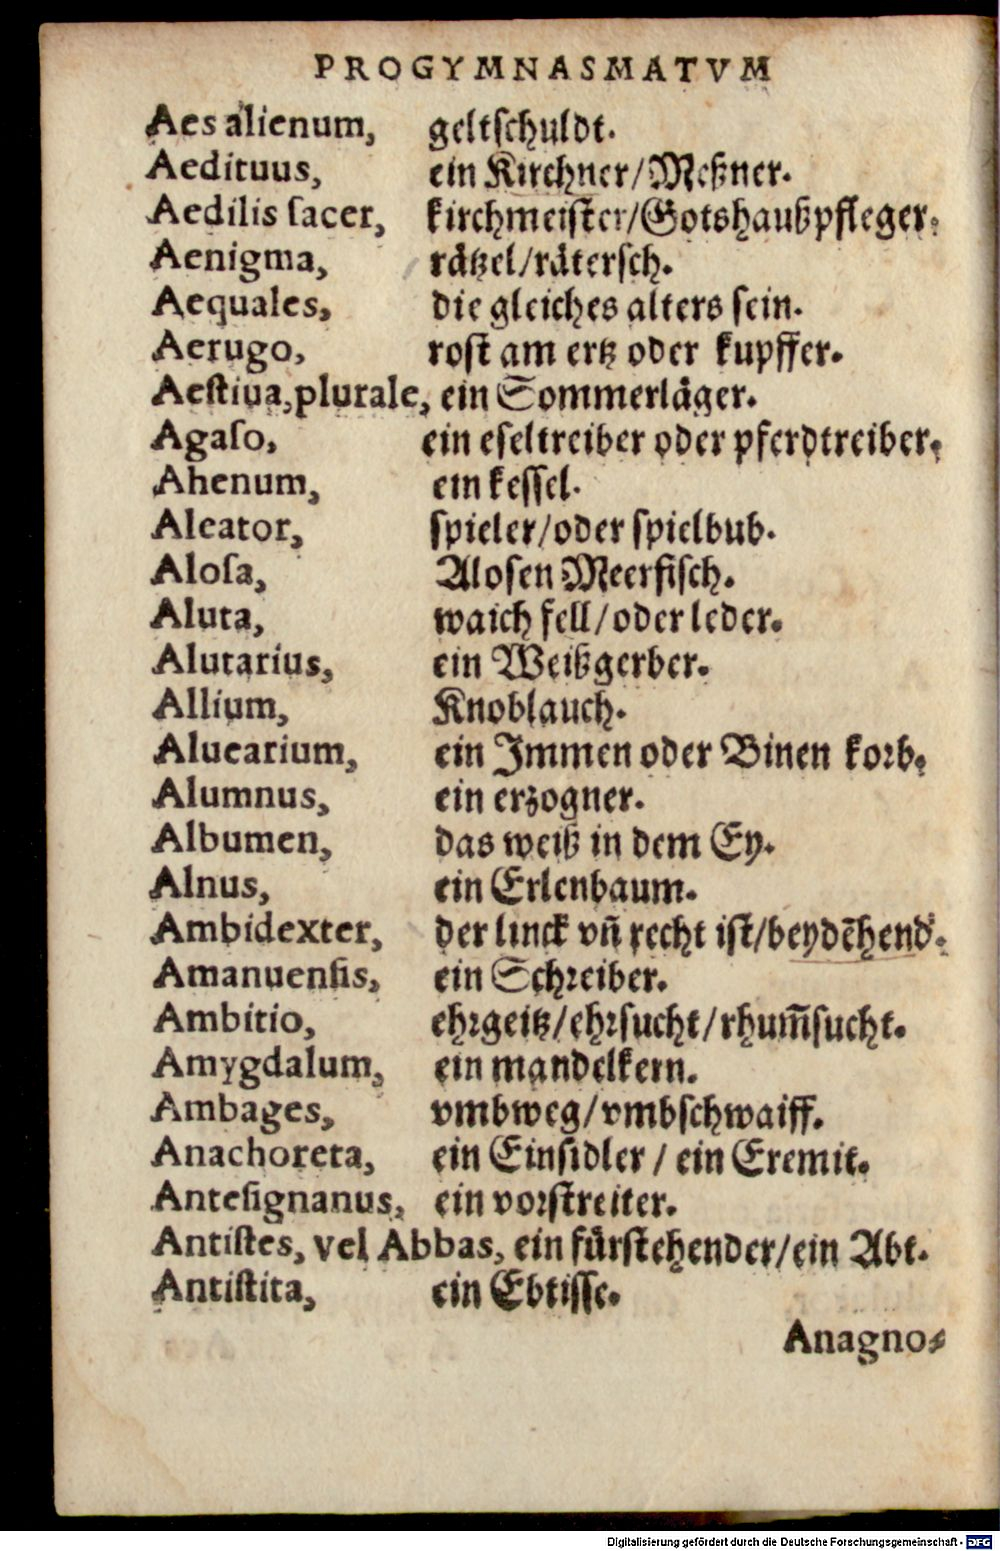 PROGYMNASMATVM
Aes alienum, geltschuldt.
Aedituus, ein Kirchner/Meßner.
Aedilis ſacer, kirchmeister/Gotshaußpfleger.
Aenigma, rätzel/rätersch.
Aequales, die gleiches alters sein.
Aerugo, rost am ertz oder kupffer.
Aeſtiua, plurale, ein Sommerläger.
Agaſo, ein eseltreiber oder pferdtreiber.
Ahenum, ein kessel.
Aleator, spieler/oder spielbub.
Aloſa, Alosen Meerfisch.
Aluta, waich fell/oder leder.
Alutarius, ein Weißgerber.
Allium, Knoblauch.
Aluearium, ein Immen oder Binen korb.
Alumnus, ein erzogner.
Albumen, das weiß in dem Ey.
Alnus, ein Erlenbaum.
Ambidexter, der linck vñ recht ist/beydẽhend.
Amanuenſis, ein Schreiber.
Ambitio, ehrgeitz/ehrsucht/rhum̃sucht.
Amygdalum, ein mandelkern.
Ambages, vmbweg/vmbschwaiff.
Anachoreta, ein Einsidler / ein Eremit.
Anteſignanus, ein vorstreiter.
Antiſtes, vel Abbas, ein fürstehender/ein Abt.
Antiſtita, ein Ebtisse.
Anagno-
Digitalisierung gefördert durch die Deutsche Forschungsgemeinschaft - DFG